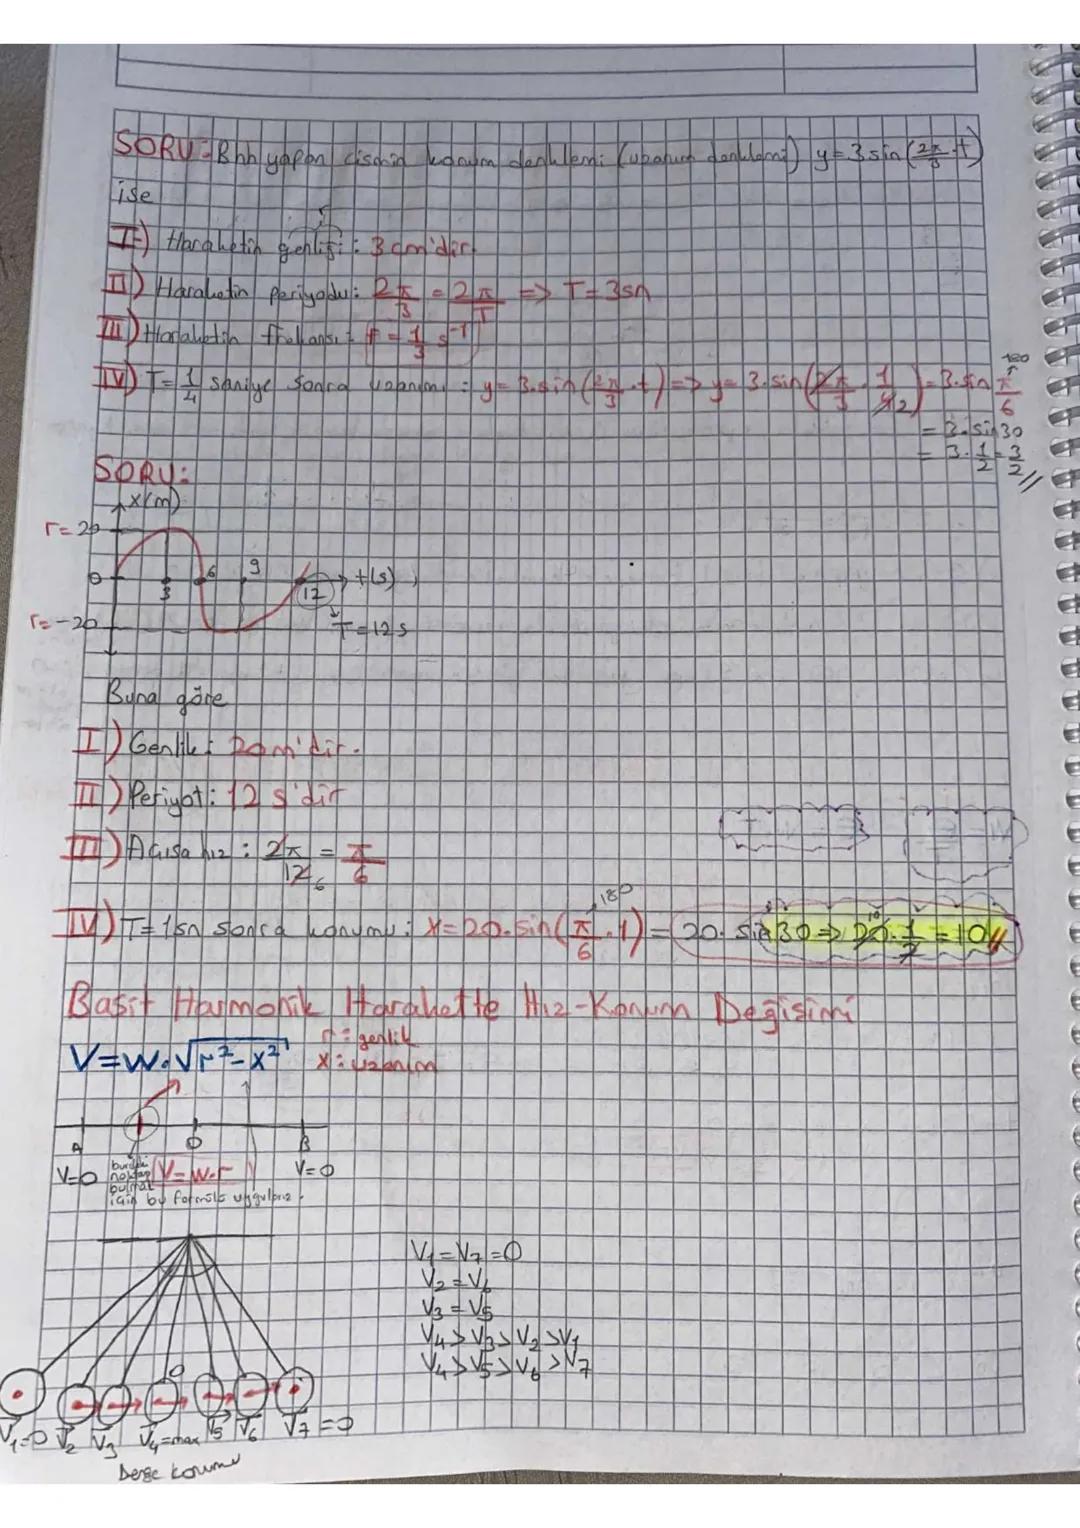 SORU: Bhh yapan cismin konum denklemi (uzanım denklemi) y=3sin(2π/3.t)
ise
I) Harahetin genliği: 3 cm'dir.
r
II) Harahetin periyodu: 2π/3 = 2π/T => T=3sn
III) Harahetin frekansı: f=1/3 s⁻¹
IV) T=1/4 saniye sonra uzanımı: y=3.sin(2π/3.t)=>y=3.sin(2π/3.1/4 2)=3.sin π/6
180
=3.sin30
=3.1/2=3/2//
SORU:
x(m)
r=20
0 3 6 9 12 t(s)
r=-20
T=12s
Buna göre
I) Genlik: 20m'dir.
II) Periyot: 12 s'dir
III) Açısa hız: 2π/12 6 = π/6
IV) T=1sn sonra konumu: x=20.sin(π/6.1)=20.sin30=>20.1/2=10//
180
10
Basit Harmonik Harahette Hız-Konum Değişimi
V=w.√r²-x²
r=genlik
x: uzanım
A O B
V=0 V=w.r V=0
burdaki noktayı bulmak
için bu formülü uygularız.
V₁=V₇=0
V₂=V₆
V₃=V₅
V₄>V₃>V₂>V₁
V₄>V₅>V₆>V₇
O
V₁=0 V₂ V₃ V₄=max V₅ V₆ V₇=0
Denge konumu